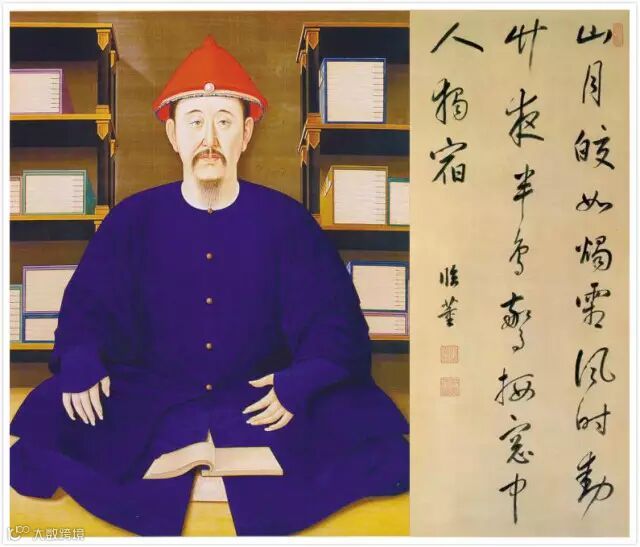 山月皎如燭霜風时動
竹夜半鳥驚栖窓中
人獨宿
臨董
大数跨境